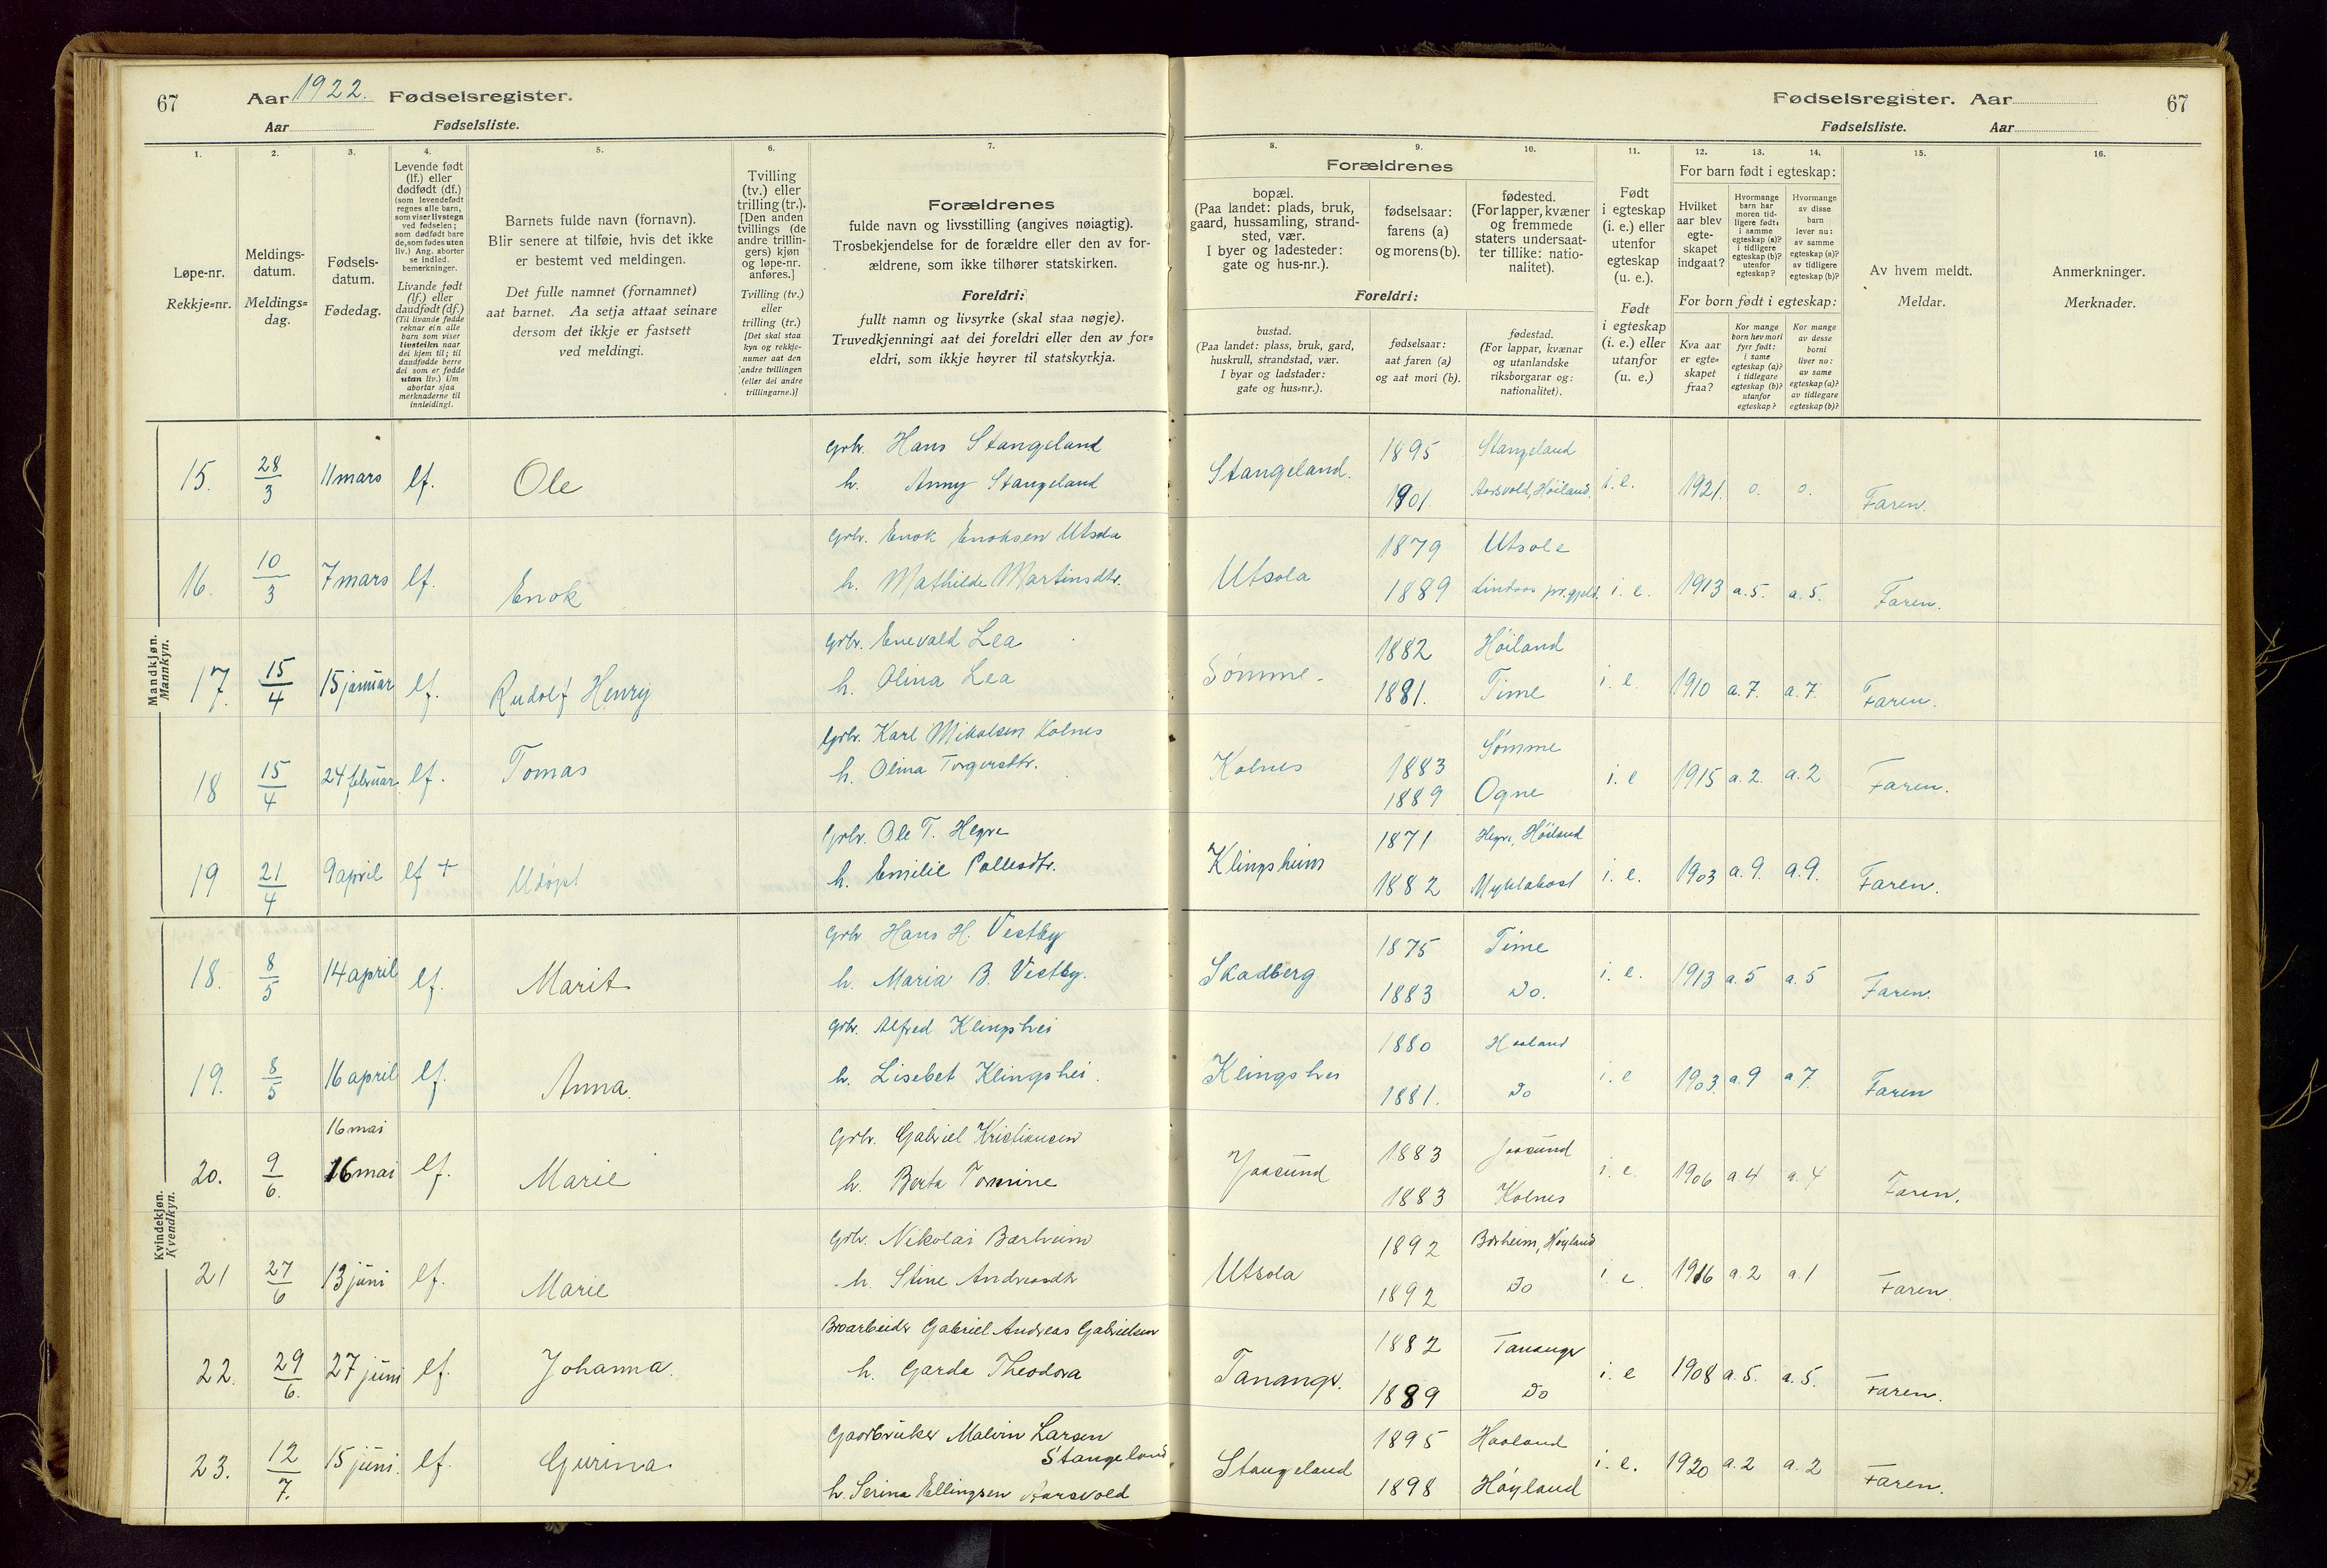 67
Aar 1922. Fødselsregister.
Aar Fødselsliste.
Fødselsregister. Aar
67
Fødselsliste. Aar
1.
2.
3.
4.
5.
6.
7.
8.
9.
10.
11.
12.
13.
14.
15.
16.
Løpe-nr.
Rekkje=nr.
Meldings-
datum.
Meldings=
dag.
Fødsels-
datum.
Fødedag.
Levende født
(lf.) eller
dødfødt (df.)
(som levendefødt
regnes alle barn,
som viser livstegn
ved fødselen;
som dødfødt bare
de, som fødes uten
liv.) Ang. aborter
se indled.
bemerkninger.
Livande født
(lf.) eller
daudfødt (df.)
(Til livande fødde
reknar ein alle
barn som viser
livsteikn naar
dei kjem til; til
daudfødde berre
dei som er fødde
utan liv.) Um
abortar sjaa
merknaderne til
innleidingi.
Barnets fulde navn (fornavn).
Blir senere at tilføie, hvis det ikke
er bestemt ved meldingen.
Det fulle namnet (fornamnet)
aat barnet. Aa setja attaat seinare
dersom det ikkje er fastsett
ved meldingi.
Tvilling
(tv.) eller
trilling (tr.).
[Den anden
tvillings (de
andre trillin-
gers) kjøn
og løpe-nr.
anføres.]
Tvilling (tv.)
eller
trilling (tr.)
[Det skal staa
kyn og rekkje-
numer aat den
andre tvillingen
(eller dei andre
trillingarne.)]
Forældrenes
fulde navn og livsstilling (angives nøiagtig).
Trosbekjendelse for de forældre eller den av for-
ældrene, som ikke tilhører statskirken.
Foreldri:
fullt namn og livsyrke (skal staa nøgje).
Truvedkjenningi aat dei foreldri eller den av for=
eldri, som ikkje høyrer til statskyrkja.
Forældrenes
bopæl.
(Paa landet: plads, bruk,
gaard, hussamling, strand-
sted, vær.
I byer og ladesteder:
gate og hus-nr.).
fødselsaar:
farens (a)
og morens (b).
fødested.
(For lapper, kvæner
og fremmede
staters undersaat-
ter tillike: natio-
nalitet).
Foreldri:
bustad.
(Paa landet: plass, bruk, gard,
huskrull, strandstad, vær.
I byar og ladstader:
gate og hus=nr.).
fødselsaar:
aat faren (a)
og aat mori (b).
fødestad.
(For lappar, kvænar
og utanlandske
riksborgarar og:
nationalitet).
Født
i egteskap
(i. e.) eller
utenfor
egteskap
(u. e.).
Født
i egteskap
(i. e.) eller
utanfor
(u. e.)
For barn født i egteskap:
Hvilket
aar blev
egte-
skapet
indgaat?
Hvormange
barn har
moren tid-
ligere født:
i samme
egteskap (a)?
i tidligere
egteskap (b)?
utenfor
egteskap?
Hvormange
av disse
barn
lever nu:
av samme
egteskap (a)?
av tidligere
egteskap (b)?
For born født i egteskap:
Kva aar
er egte=
skapet
fraa?
Kor mange
born hev mori
fyrr født:
i same
egteskap (a)?
i tidlegare
egteskap (b)?
utanfor
egteskap?
Kor mange
av desse
borni
liver no:
av same
egteskap (a)?
av tidlegare
egteskap (b)?
Av hvem meldt.
Meldar.
Anmerkninger.
Merknader.
Mandkjøn.
Mannkyn.
15. 28/3 11 mars lf. Ole
Grbr. Hans Stangeland
h. Anny Stangeland
Stangeland. 1895 Stangeland
1901. Aarsvold, Høiland. i. e. 1921. 0. 0. Faren.
16. 10/3 7 mars lf. Enok
Grbr. Enok Enoksen Utsola
h. Mathilde Martinsdtr.
Utsola 1879 Utsola
1889 Lindaas pr.gjeld. i. e. 1913 a. 5. a. 5. Faren.
17. 15/4 15 januar lf. Rudolf Henry
Grbr. Enevald Lea
h. Olina Lea
Sømme. 1882 Høiland
1881. Time i. e. 1910 a. 7. a. 7. Faren.
18 15/4 24 februar lf. Tomas
Grbr. Karl Mikalsen Kolnes
h. Olina Torgersdtr.
Kolnes 1883 Sømme
1889 Ogne i. e 1915 a. 2. a. 2 Faren.
19 21/4 9 april lf + Udøpt
Grbr. Ole T. Hegre
h. Emilie Pallesdtr.
Klingsheim 1871 Hegre, Høiland
1882 Myklabost i. e. 1903 a. 9. a. 9. Faren.
Kvindekjøn.
Kvendkyn.
18. 8/5 14 april lf. Marit
Grbr Hans H. Vestby
h. Maria B. Vestby.
Skadberg 1875 Time
1883 Do. i. e. 1913 a. 5 a. 5 Faren.
19. 8/5 16 april lf. Anna.
Grbr. Alfred Klingshei
h. Lisebet Klingshei.
Klingshei 1880 Haaland
1881. Do i. e 1903. a. 9 a 7. Faren
16 mai
20. 9/6. 16 mai lf. Marie
Grbr. Gabriel Kristiansen
h. Berta Tomine
Jaasund 1883 Jaasund
1883 Kolnes i. e. 1906 a. 4 a. 4 Faren.
21 27/6 13 juni lf. Marie
Grbr. Nikolai Barheim
h. Stine Andreasdtr
Utsola 1892 Barheim, Høyland
1892 Do i. e. 1916 a. 2 a. 1 Faren.
22. 29/6. 27 juni lf. Johanna.
Broarbeider Gabriel Andreas Gabrielsen
h. Garda Theodora
Tananger. 1882 Tananger
1889 Do i. e 1908 a. 5. a. 5. Faren.
23. 12/7. 15 juni. lf. Gurina.
Gaardbruker Malvin Larsen
Stangeland
h. Serina Ellingsen Aarsvold
Stangeland 1895 Haaland
1898 Høyland i. e. 1920 a. 2 a. 2 Faren.